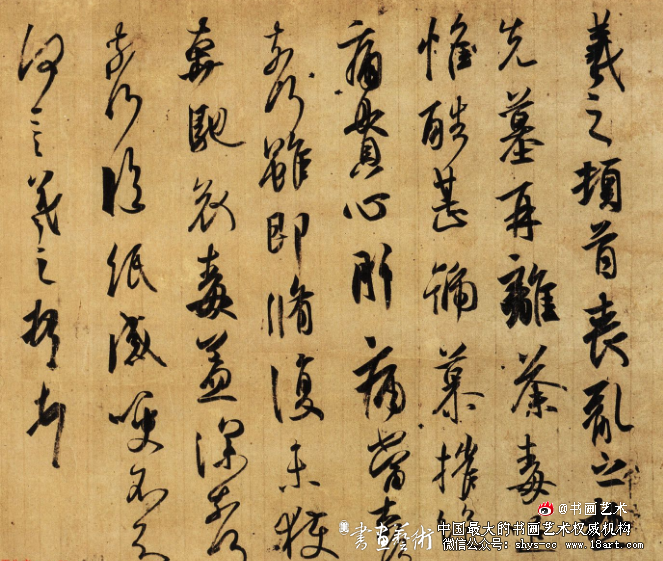 羲之頓首喪亂之
先墓再離荼毒
惟酷甚號慕摧
痛貫心肝痛當奈
奈何雖即脩復未獲
奔馳哀毒益深奈何
奈何臨紙感哽不知
何言羲之頓首
@书画艺术
書畫藝術
中国最大的书画艺术权威机构
微信公众号：shys-cc www.18art.com